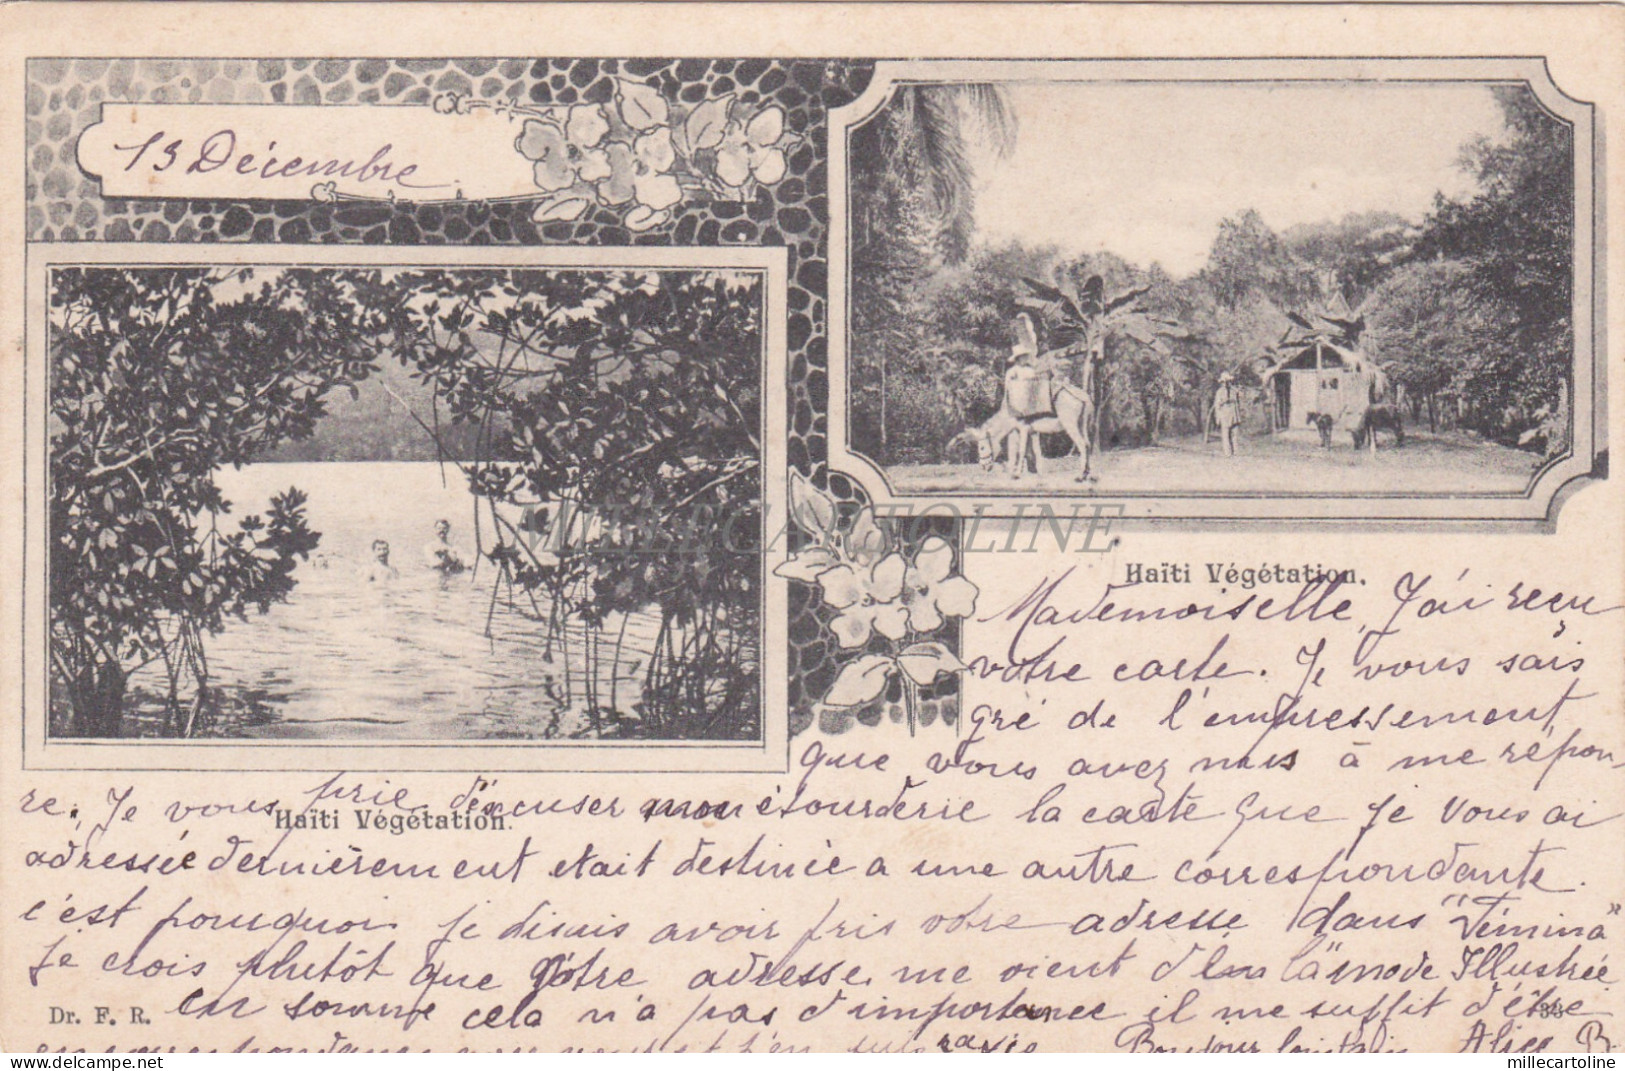 13 Décembre
MILLECARTOLINE
Haïti Végétation.
Mademoiselle, J'ai reçu
votre carte. Je vous sais
gré de l'empressement
que vous avez mis à me répon-
re. Je vous prie d'excuser mon étourderie la carte que je vous ai
Haïti Végétation.
adressée dernièrement etait destinée a une autre correspondante.
c'est pourquoi je disais avoir pris votre adresse dans "Fémina"
Je crois plutôt que votre adresse me vient de la "mode Illustrée
Dr. F. R.
en somme cela n'a pas d'importance il me suffit d'être
38
en correspondance avec vous et j'en suis ravie Bonjour lointain Alice B.
delcampe.net
millecartoline